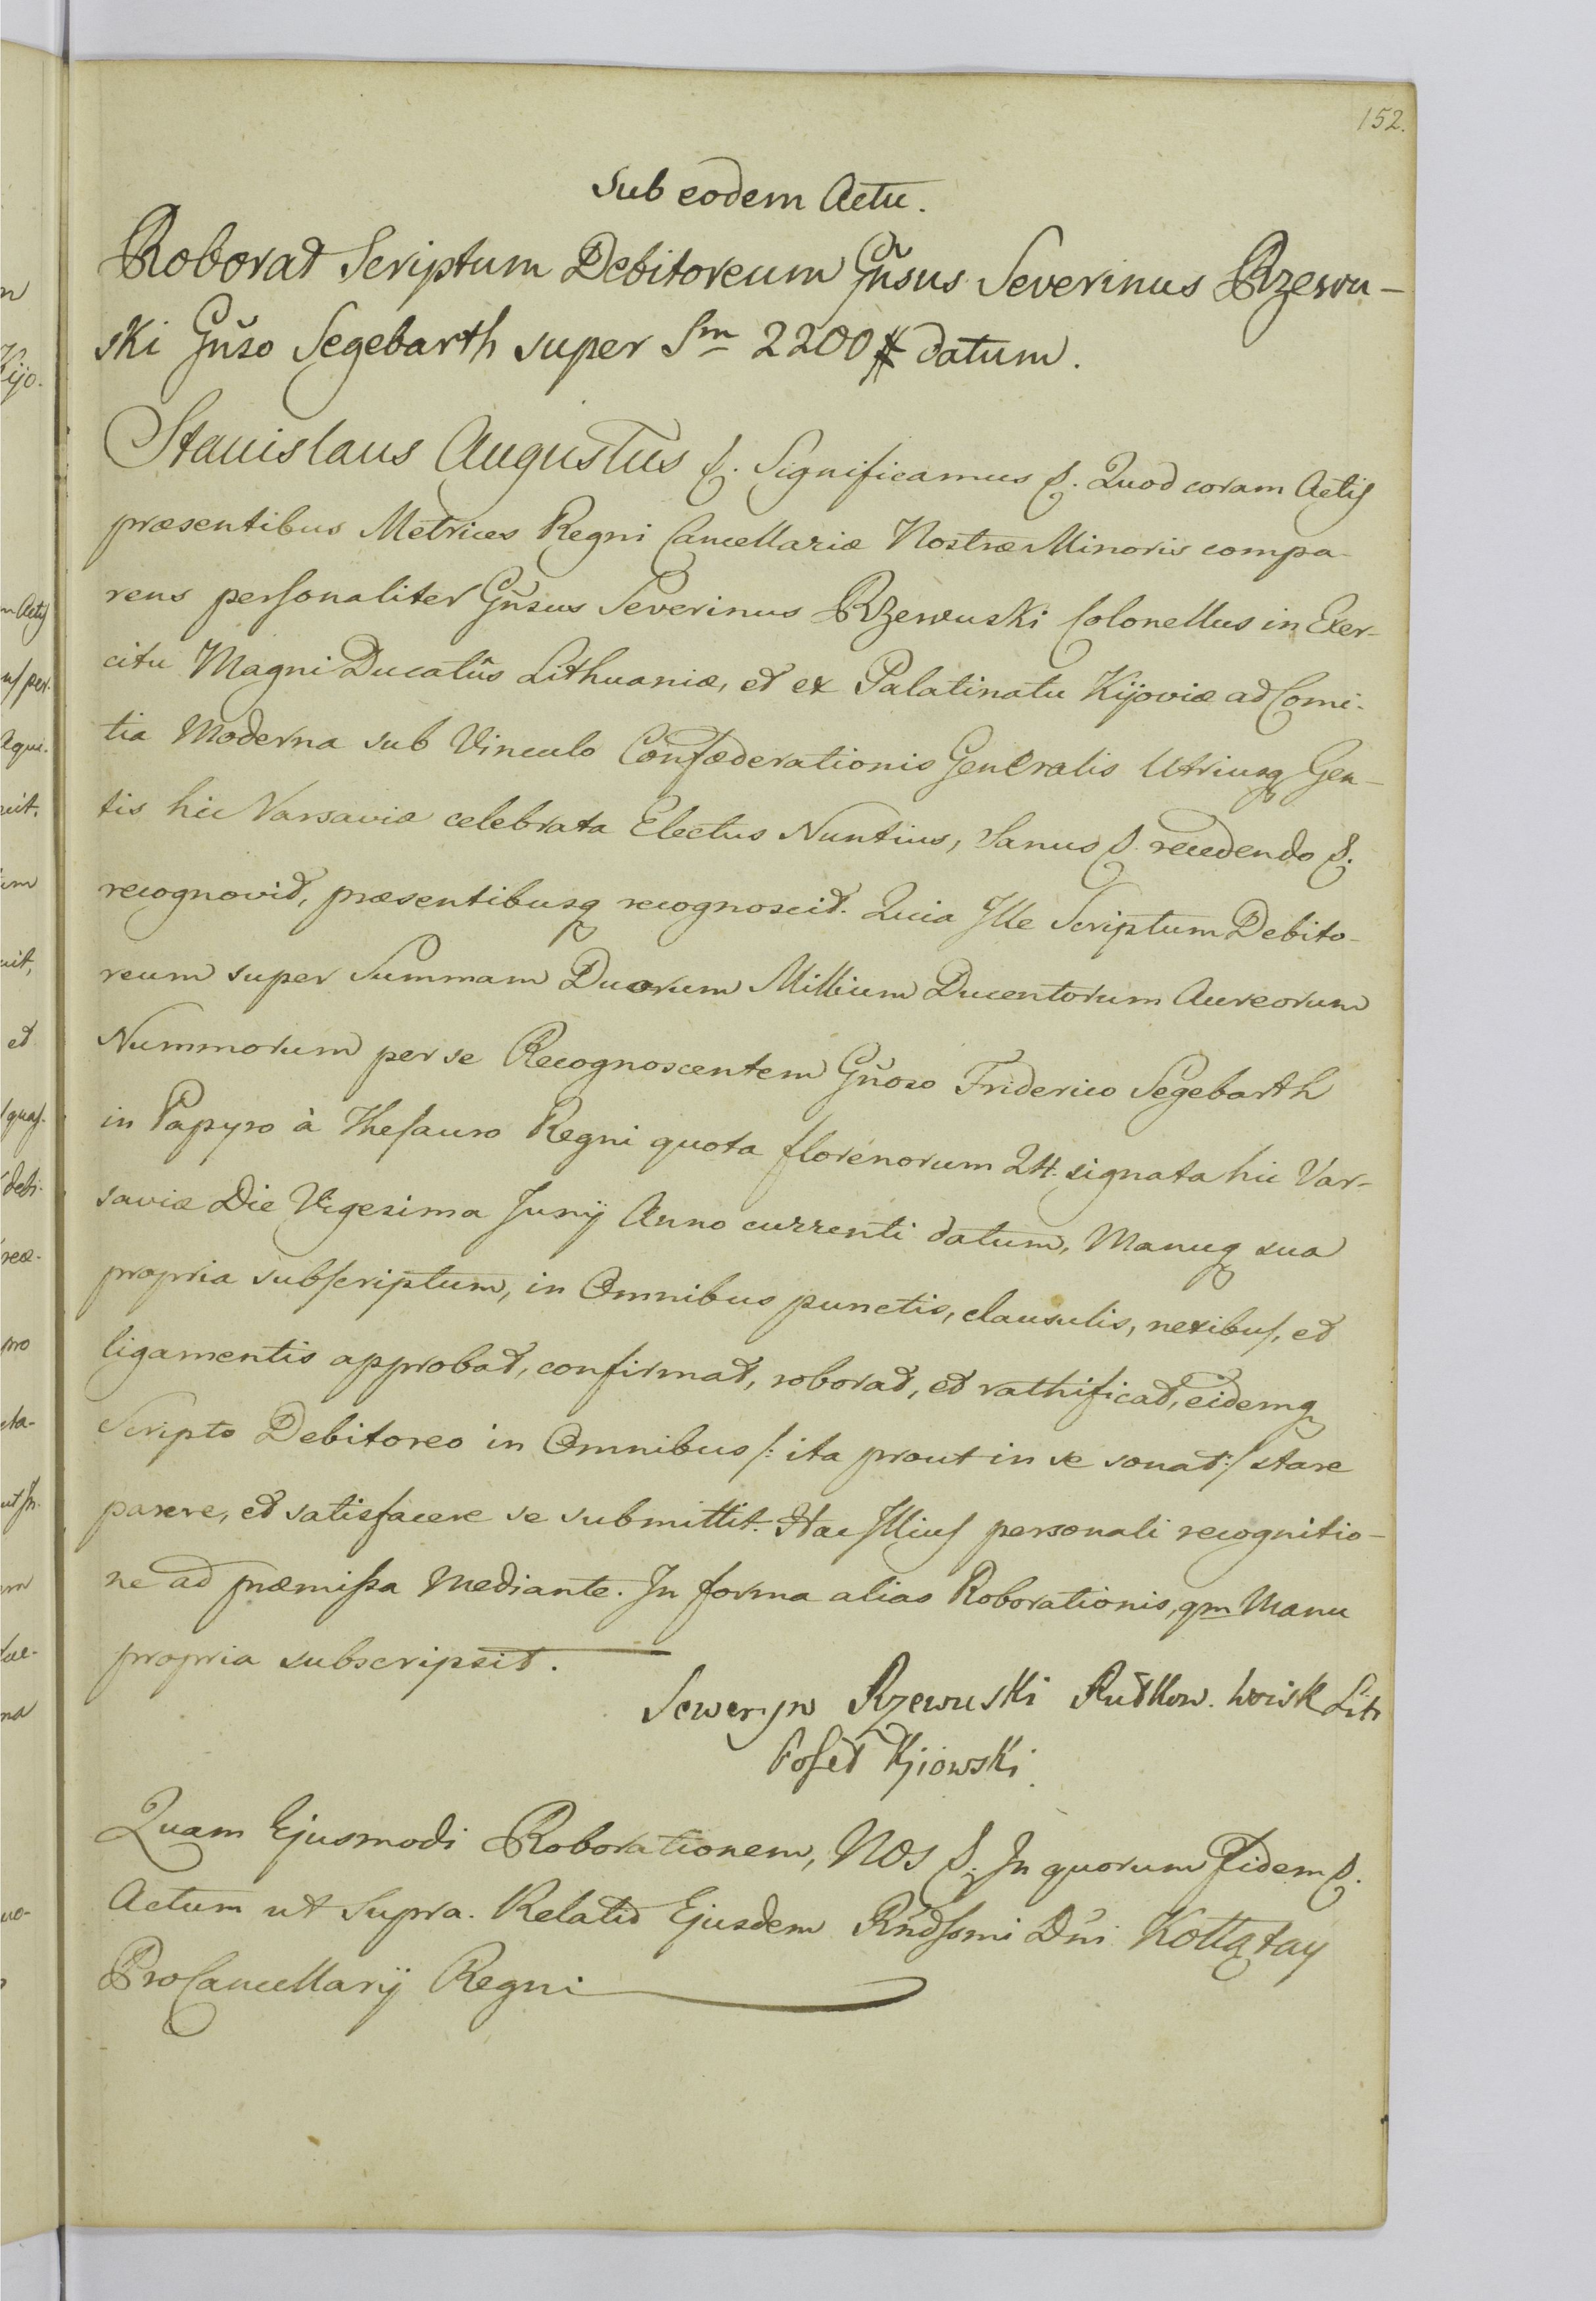 152.
Sub eodem Actu.
Roborat Scriptum Debitoreum Gñsus Severinus Rzewu-
ski Gñso Segebarth super Sm 2200 # datum.
Stanislaus Augustus &. Significamus &. Quod coram Actis
præsentibus Metrices Regni Cancellariæ Nostræ Minoris compa-
rens personaliter Gñsus Severinus Rzewuski Colonellus in Exer-
citu Magni Ducatûs Lithuaniæ, et ex Palatinatu Kijoviæ ad Comi-
tia Moderna sub Vinculo Confæderationis Generalis Utriusq Gen-
tis hic Varsaviæ celebrata Electus Nuntius, Sanus &. recedendo &.
recognovit, præsentibusq recognoscit. Quia Ille Scriptum Debito-
reum super Summam Duorum Millium Ducentorum Aureorum
Nummorum per se Recognoscentem Gñoso Friderico Segebarth
in Papyro à Thesauro Regni quota florenorum 24. signata hic Var-
saviæ Die Vigesima Junij Anno currenti datum, Manuq sua
propria subscriptum, in Omnibus punctis, clausulis, nexibus, et
ligamentis approbat, confirmat, roborat, et rathificat, eidemq
Scripto Debitoreo in Omnibus /: ita prout in se sonat :/ stare
parere, et satisfacere se submittit. Hac Illius personali recognitio-
ne ad præmissa Mediante. In forma alias Roborationis, qm Manu
propria subscripsit.
Seweryn Rzewuski Pułkow. Woisk Lit
Poseł Kjiowski.
Quam Ejusmodi Roborationem, NOS &. In quorum Fidem &.
Actum ut Supra. Relatio Ejusdem Rńdssmi Dńi Kołłątay
ProCancellarij Regni